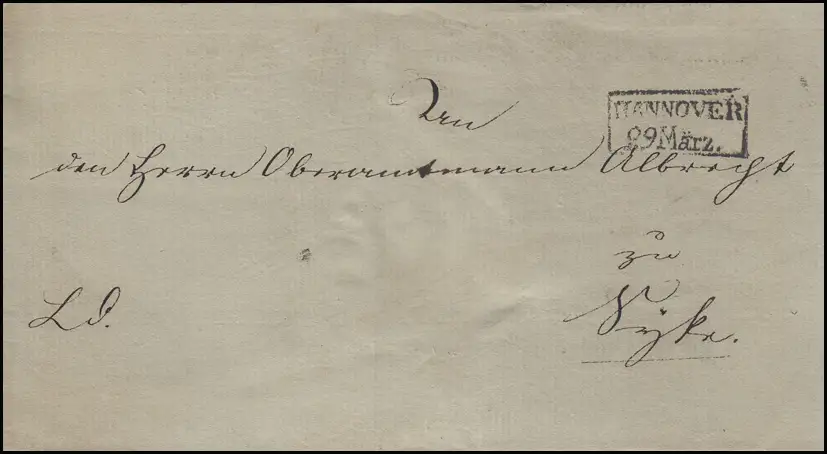 An
HANNOVER
29 März.
den Herrn Oberamtmann Albrecht
zu
L. D.
Syke.